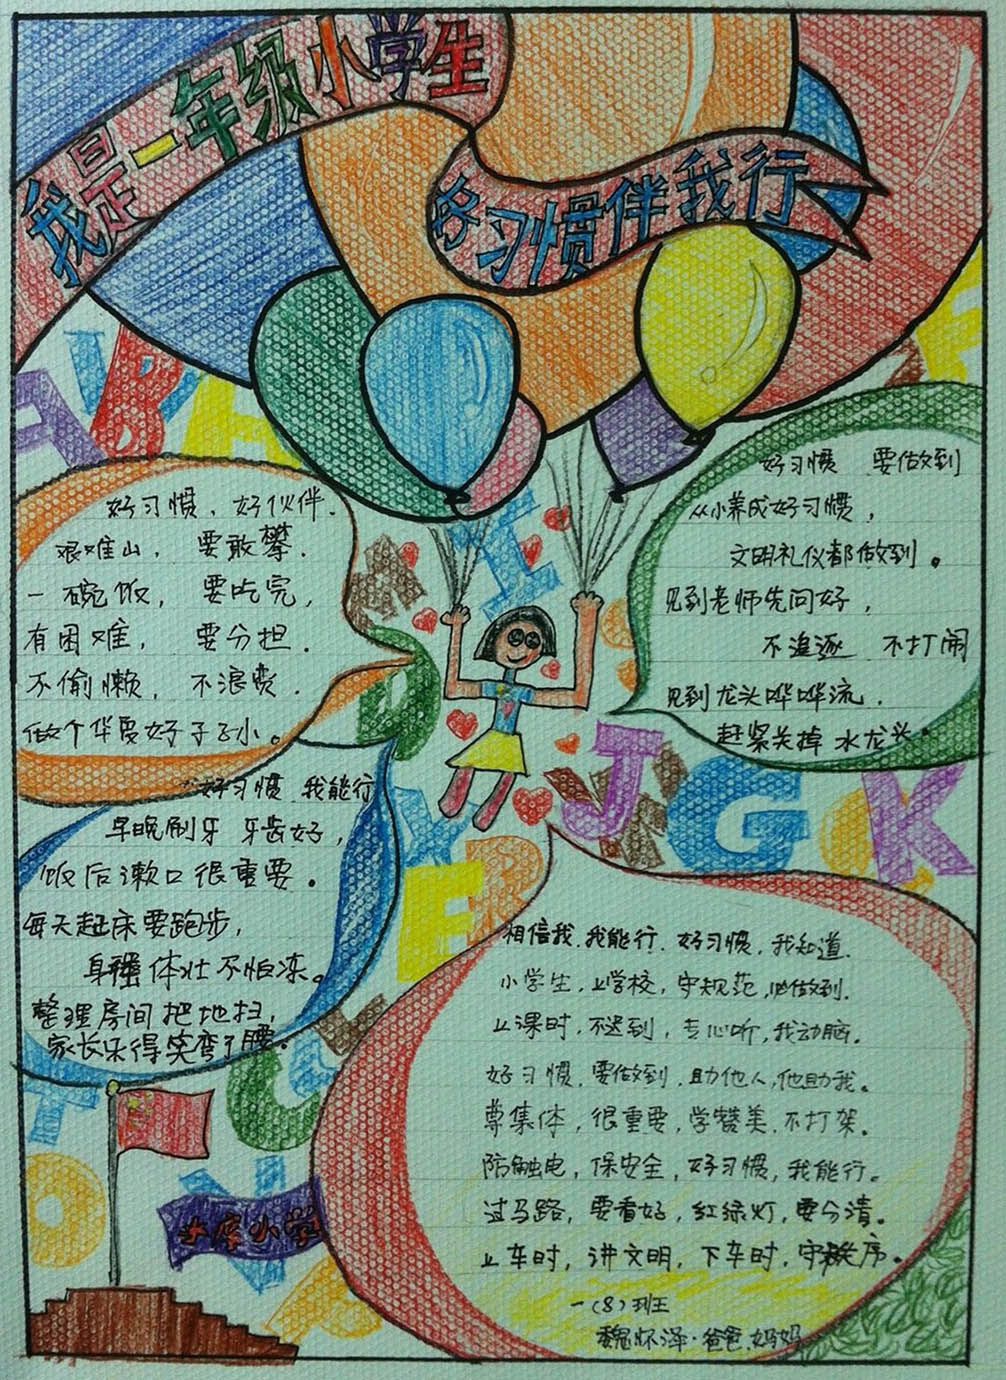 我是一年级小学生
好习惯伴我行
好习惯，好伙伴．
艰难山，要敢攀．
一碗饭，要吃完，
有困难，要分担．
不偷懒，不浪费．
做个华夏好子子小。
好习惯 要做到
从小养成好习惯，
文明礼仪都做到。
见到老师先问好，
不追逐 不打闹
见到龙头哗哗流．
赶紧关掉水龙头．
好习惯 我能行
早晚刷牙 牙齿好，
饭后漱口很重要。
每天起床要跑步，
身强体壮不怕冻。
整理房间把地扫，
家长乐得笑弯了腰。
相信我．我能行．好习惯，我知道．
小学生，上学校，守规范，必做到．
上课时，不迟到，专心听，我动脑。
好习惯．要做到，助他人，他助我。
尊集体，很重要，学赞美．不打架．
防触电，保安全，好习惯，我能行。
过马路，要看好，红绿灯，要分清。
上车时，讲文明，下车时，守秩序。
一(8)班
魏怀泽·爸爸．妈妈
小学
A B
M I
D
J G K
Y R
E